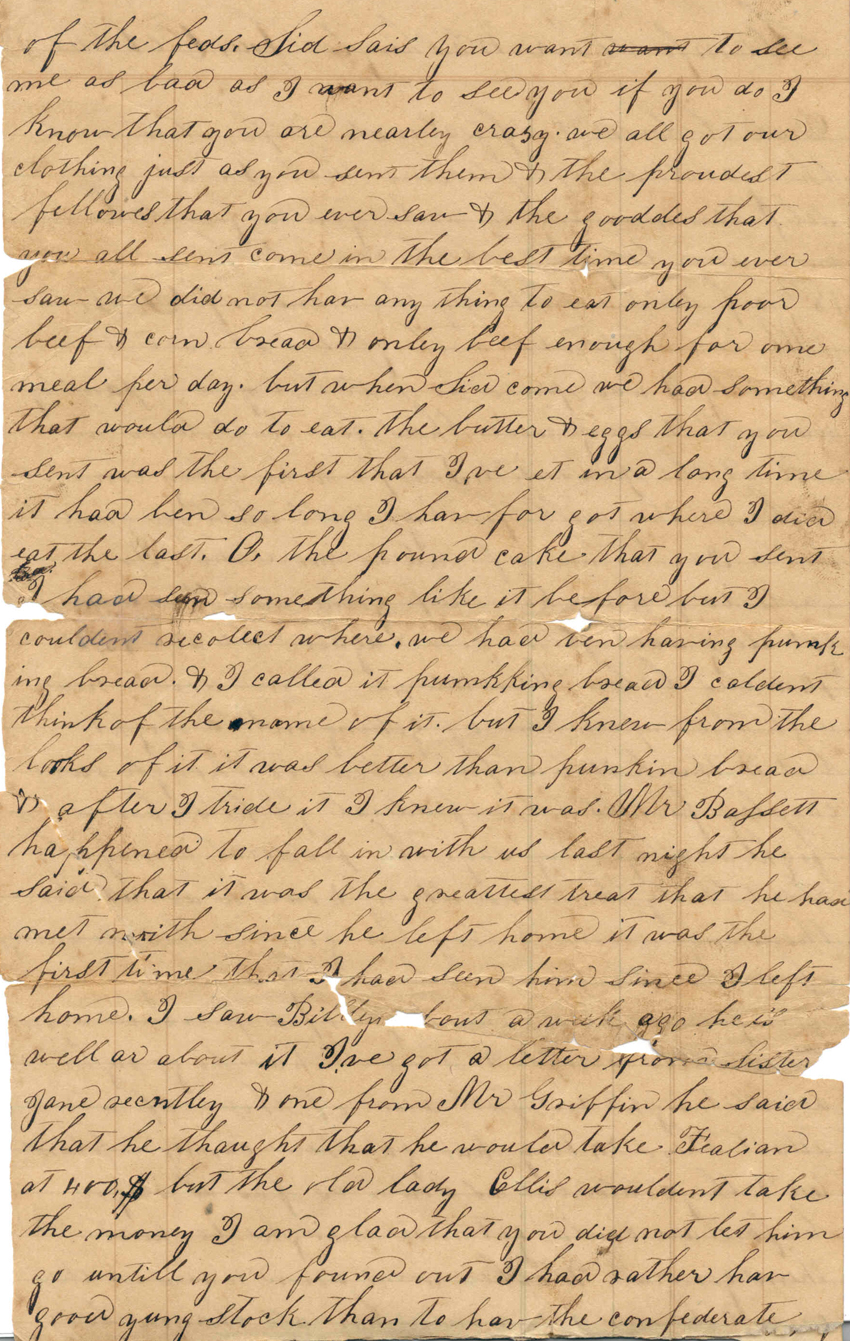 of the feds. Sid sais you want want to see
me as bad as I want to see you if you do I
know that you are nearley crasy. we all got our
clothing just as you sent them & the proudest
fellowes that you ever saw & the gooddes that
you all sent come in the best time you ever
saw we did not hav any thing to eat onley poor
beef & corn bread & onley beef enough for one
meal per day. but when Sid come we had something
that would do to eat. the butter & eggs that you
sent was the first that I've et in a long time
it had ben so long I hav for got where I did
eat the last. O, the pound cake that you sent
I had seen something like it before but I
couldent recolect where. we had ben having pumk
ing bread. & I called it pumkking bread I caldent
think of the name of it. but I knew from the
looks of it it was better than punkin bread
& after I tride it I knew it was. Mr Bassett
happened to fall in with us last night he
said that it was the greattest treat that he had
met with since he left home it was the
first time that I had seen him since I left
home. I saw Billy bout a week ago he is
well ar about it I've got a letter from sister
Jane recntley & one from Mr Griffin he said
that he thaught that he would take Fealian
at 400,$ but the old lady Ellis wouldent take
the money I am glad that you did not let him
go untill you found out I had rather hav
good yung stock than to hav the confederate